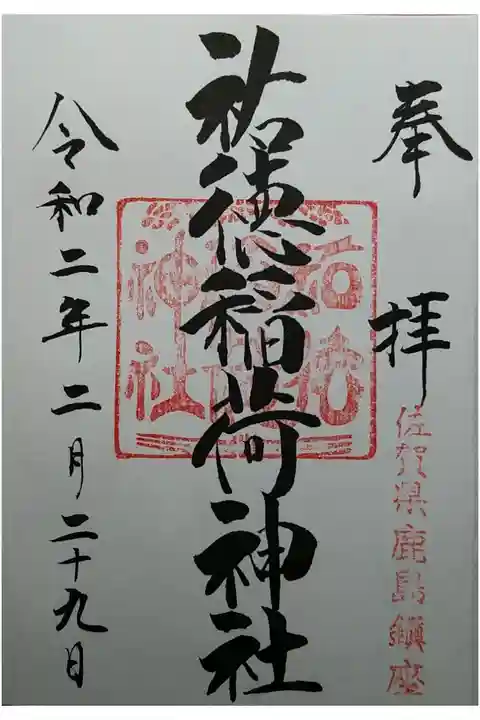 奉拝
佐賀県鹿島鎮座
祐徳稲荷神社
祐徳稲荷神社
令和二年二月二十九日